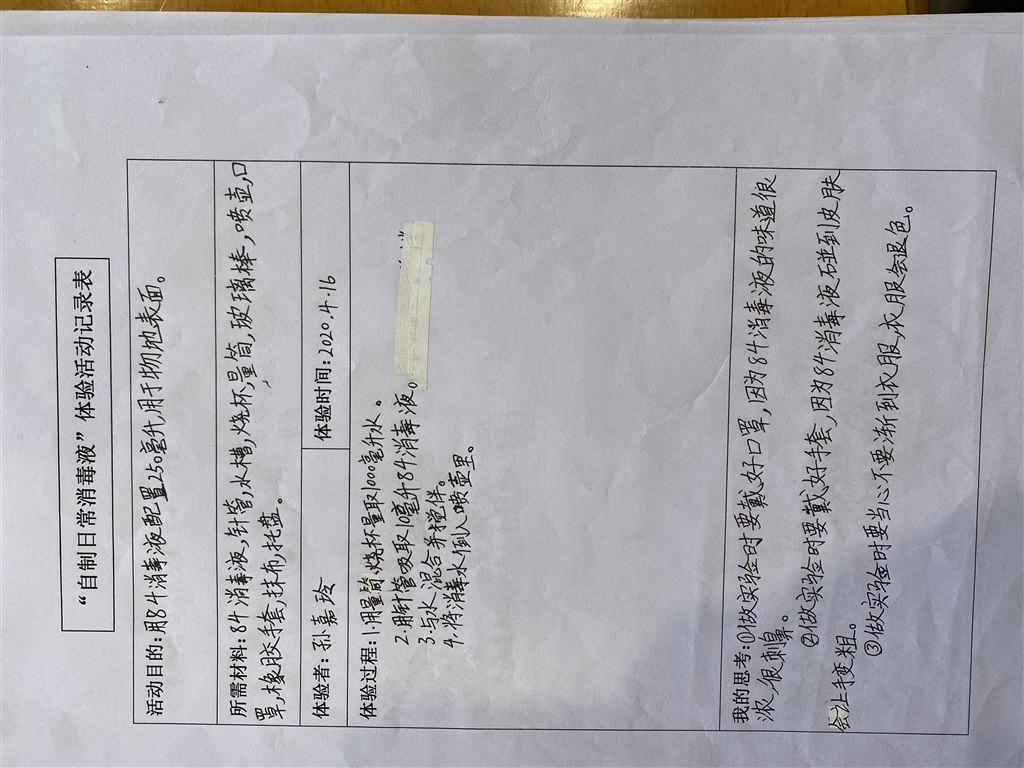 “自制日常消毒液”体验活动记录表
活动目的:用84消毒液配置250毫升,用于物地表面。
所需材料:84消毒液,针管,水槽,烧杯,量筒,玻璃棒,喷壶,口
罩,橡胶手套,抹布,托盘。
体验者:孙嘉玲
体验时间:2020.4.16
体验过程:1.用量筒,烧杯量取1000毫升水。
2.用针管吸取10毫升84消毒液。
3.与水混合并搅伴。
4.将消毒水倒入喷壶里。
我的思考:①做实验时要戴好口罩,因为84消毒液的味道很
浓,很刺鼻。
②做实验时要戴好手套,因为84消毒液碰到皮肤
会让手变粗。
③做实验时要当心不要渐到衣服,衣服会退色。